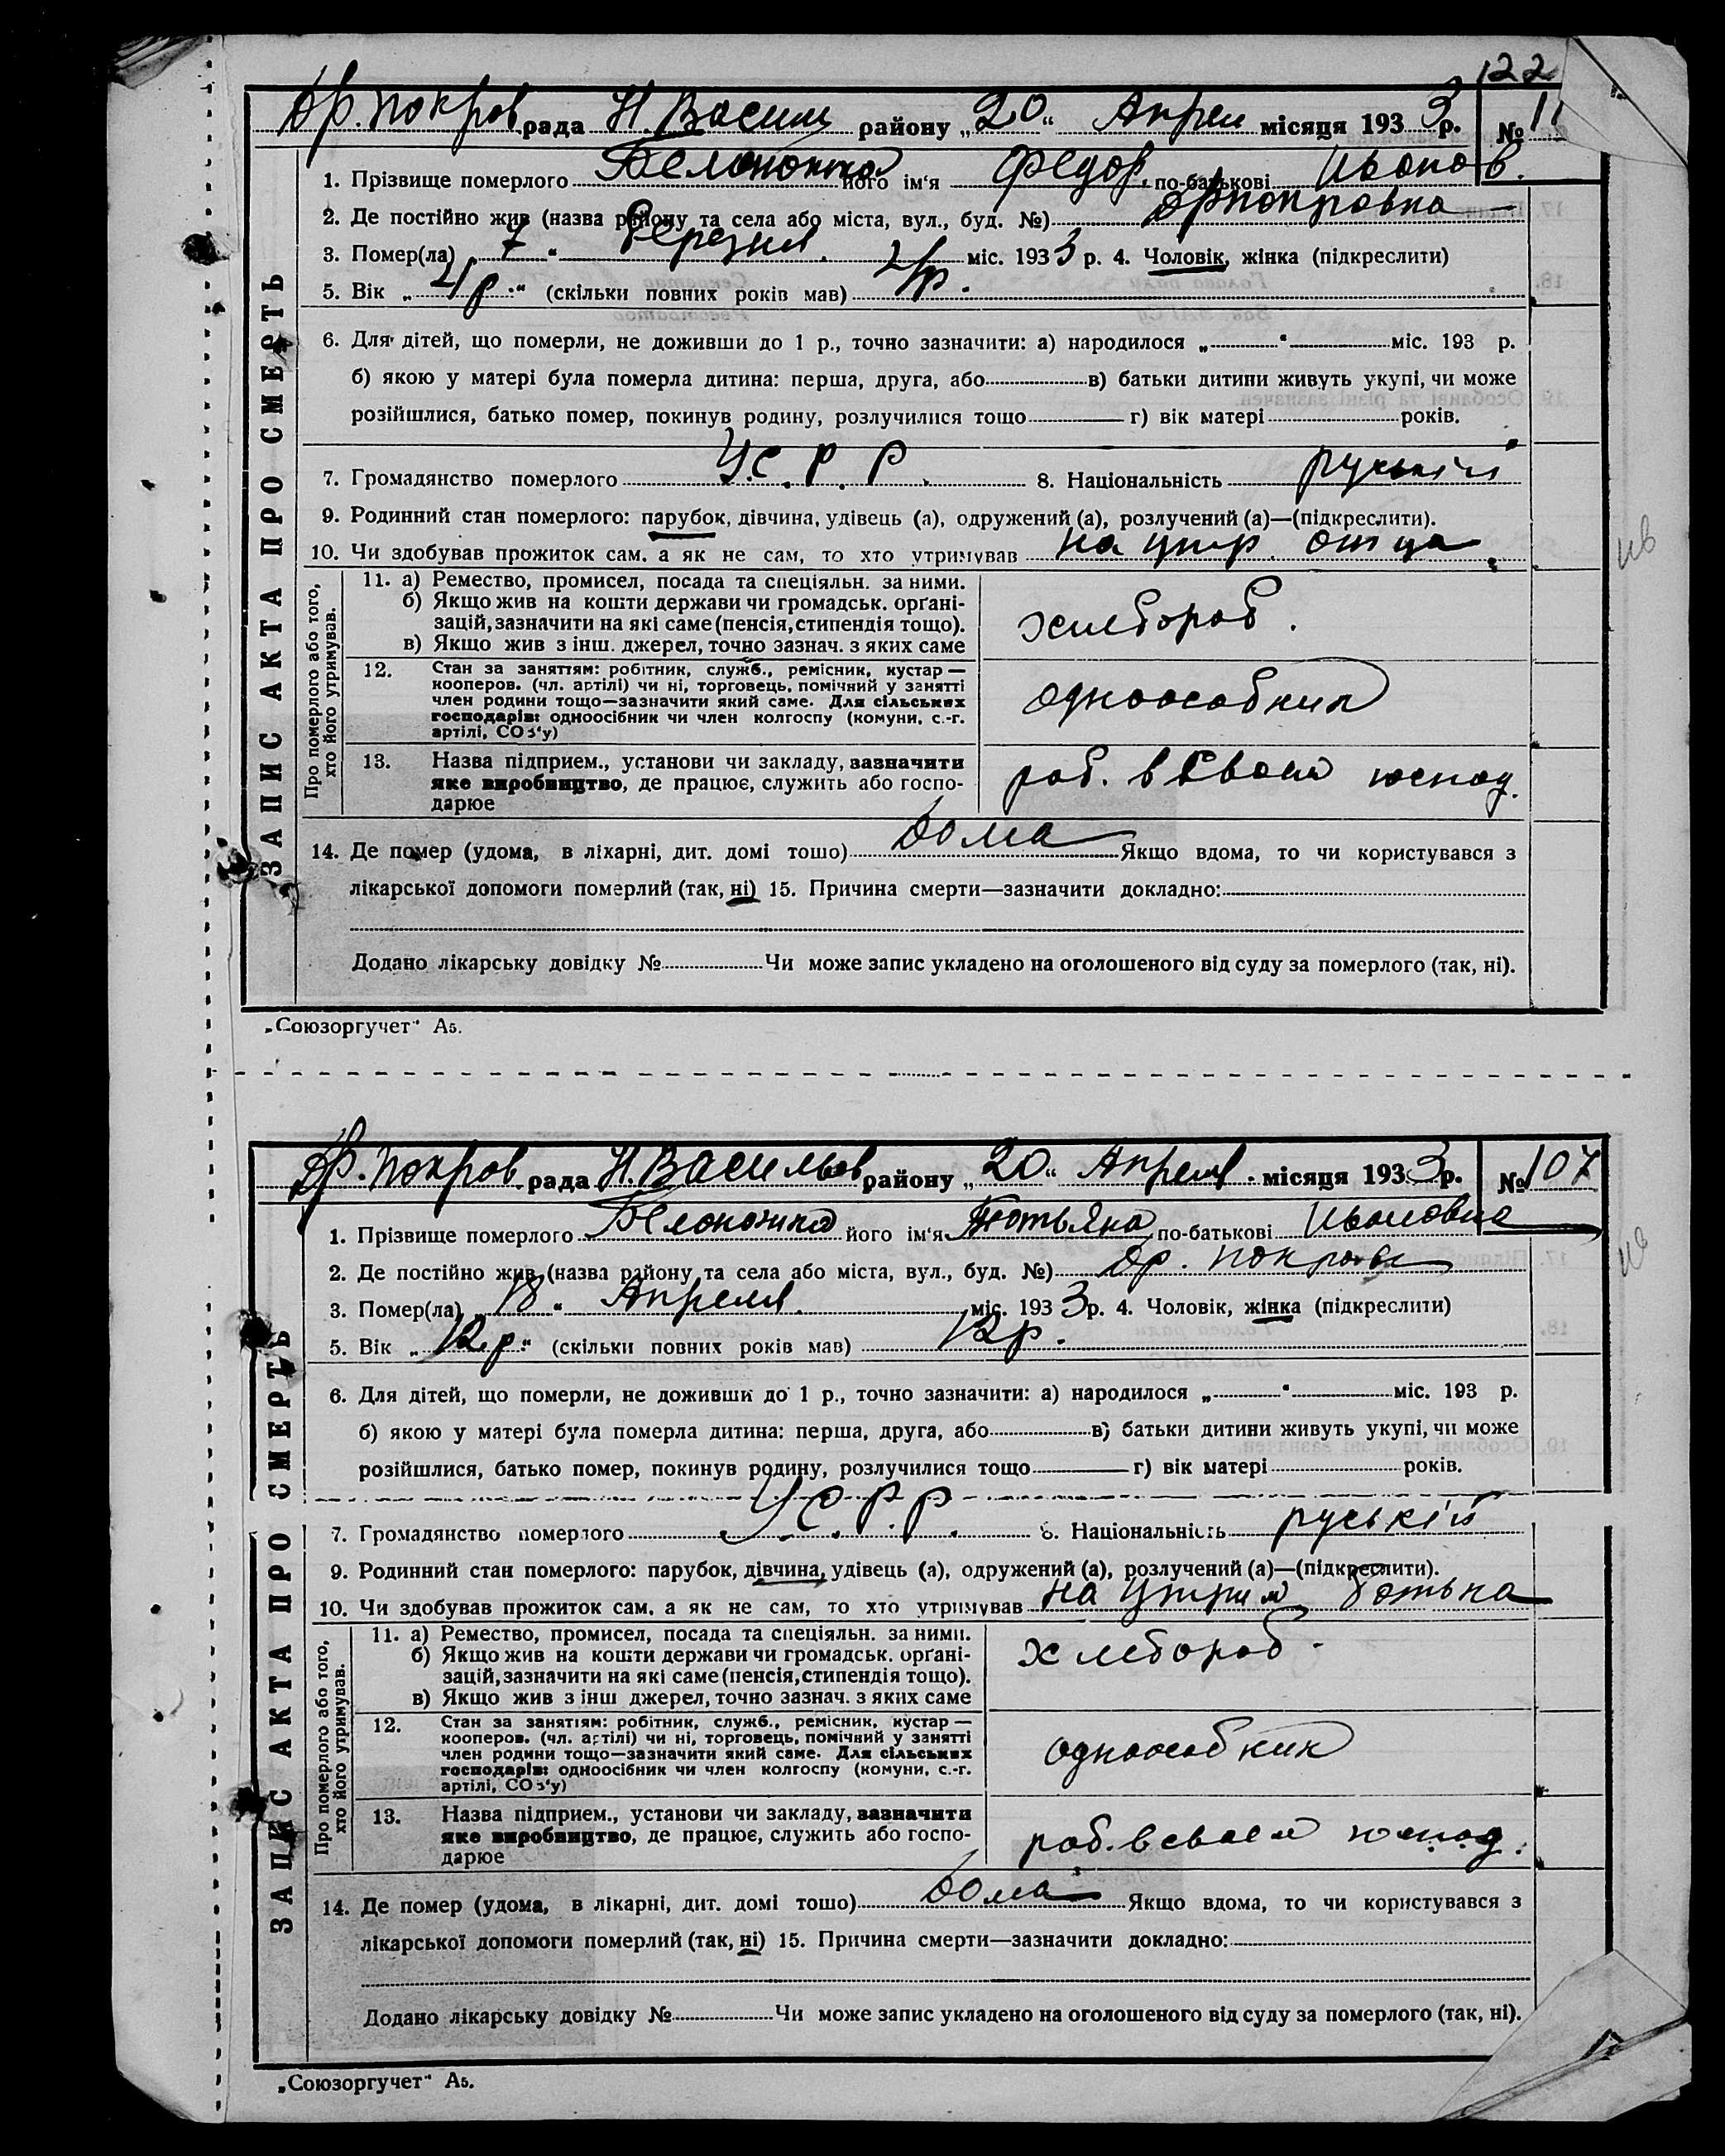 122
Др. Покров рада Н. Васил району „20“ Апрел місяця 1933 р. № 11
1. Прізвище померлого Белоножка його ім‘я Федор. по-батькові Иванов.
2. Де постійно жив (назва району та села або міста, вул., буд. №) Дрпокровка
3. Помер(ла) „7“ Березня. міс. 1933 р. 4. Чоловік, жінка (підкреслити)
5. Вік „4р.“ (скільки повних років мав) 4р.
6. Для дітей, що померли, не доживши до 1 р., точно зазначити: а) народилося „ “ міс. 193 р.
б) якою у матері була померла дитина: перша, друга, або в) батьки дитини живуть укупі, чи може
розійшлися, батько помер, покинув родину, розлучилися тощо г) вік матері років.
7. Громадянство померлого У.С.Р.Р. 8. Національність руський
9. Родинний стан померлого: парубок, дівчина, удівець (а), одружений (а), розлучений (а)—(підкреслити).
10. Чи здобував прожиток сам, а як не сам, то хто утримував на утр. отца
ЗАПИС АКТА ПРО СМЕРТЬ
Про померлого або того, хто його утримував.
11. а) Ремество, промисел, посада та спеціяльн. за ними.
б) Якщо жив на кошти держави чи громадськ. орґані-
зацій, зазначити на які саме (пенсія, стипендія тощо).
в) Якщо жив з інш. джерел, точно зазнач. з яких саме
хлебороб.
12. Стан за заняттям: робітник, служб., ремісник, кустар —
кооперов. (чл. артілі) чи ні, торговець, помічний у занятті
член родини тощо—зазначити який саме. Для сільських
господарів: одноосібник чи член колгоспу (комуни, с.-г.
артілі, СОЗ‘у)
одноособник
13. Назва підприєм., установи чи закладу, зазначити
яке виробництво, де працює, служить або госпо-
дарює
раб. в своем господ.
14. Де помер (удома, в ліхарні, дит. домі тощо) дома Якщо вдома, то чи користувався з
лікарської допомоги померлий (так, ні) 15. Причина смерти—зазначити докладно:
Додано лікарську довідку № Чи може запис укладено на оголошеного від суду за померлого (так, ні).
„Союзоргучет“ А5.
Др. Покров рада Н. Васильев району „20“ Апреля місяця 1933 р. № 107
1. Прізвище померлого Белоножка його ім‘я Татьяна по-батькові Ивановна
2. Де постійно жив (назва району та села або міста, вул., буд. №) Др. Покровк
3. Помер(ла) „18“ Апреля. міс. 1933 р. 4. Чоловік, жінка (підкреслити)
5. Вік „12р.“ (скільки повних років мав) 12р.
6. Для дітей, що померли, не доживши до 1 р., точно зазначити: а) народилося „ “ міс. 193 р.
б) якою у матері була померла дитина: перша, друга, або в) батьки дитини живуть укупі, чи може
розійшлися, батько помер, покинув родину, розлучилися тощо г) вік матері років.
7. Громадянство померлого У.С.Р.Р. 8. Національність руській
9. Родинний стан померлого: парубок, дівчина, удівець (а), одружений (а), розлучений (а)—(підкреслити).
10. Чи здобував прожиток сам, а як не сам, то хто утримував на утрим батька
ЗАПИС АКТА ПРО СМЕРТЬ
Про померлого або того, хто його утримував.
11. а) Ремество, промисел, посада та спеціяльн. за ними.
б) Якщо жив на кошти держави чи громадськ. орґані-
зацій, зазначити на які саме (пенсія, стипендія тощо).
в) Якщо жив з інш джерел, точно зазнач. з яких саме
хлебороб.
12. Стан за заняттям: робітник, служб., ремісник, кустар —
кооперов. (чл. артілі) чи ні, торговець, помічний у занятті
член родини тощо—зазначити який саме. Для сільських
господарів: одноосібник чи член колгоспу (комуни, с.-г.
артілі, СОЗ‘у)
одноособник
13. Назва підприєм., установи чи закладу, зазначити
яке виробництво, де працює, служить або госпо-
дарює
раб. в своем господ.
14. Де помер (удома, в лікарні, дит. домі тощо) дома Якщо вдома, то чи користувався з
лікарської допомоги померлий (так, ні) 15. Причина смерти—зазначити докладно:
Додано лікарську довідку № Чи може запис укладено на оголошеного від суду за померлого (так, ні).
„Союзоргучет“ А5.